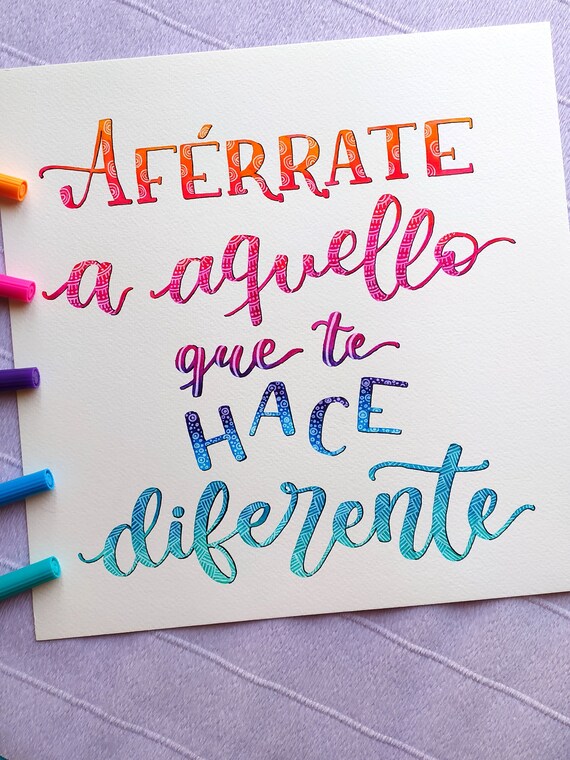 AFÉRRATE
a aquello
que te
HACE
diferente